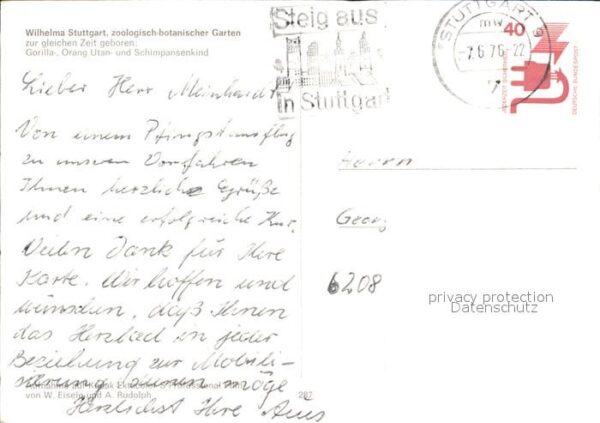 Wilhelma Stuttgart, zoologisch-botanischer Garten
zur gleichen Zeit geboren:
Gorilla-, Orang Utan- und Schimpansenkind
Steig aus
in Stuttgart
STUTTGART 9
mw
-7.6.76-22
40
JEDERZEIT SICHERHEIT
DEUTSCHE BUNDESPOST
Lieber Herr Meinhardt
Von einem Pfingstausflug
zu unseren Vorfahren
Ihnen herzliche Grüße
und eine erfolgreiche Kur.
Vielen Dank für Ihre
Karte. Wir hoffen und
wünschen, daß Ihnen
das Herzbad in jeder
Beziehung zur Mobili-
sierung dienen möge
Herzlichst Ihre
Herrn
Georg
6208
privacy protection
Datenschutz
von W. Eisele und A. Rudolph
287